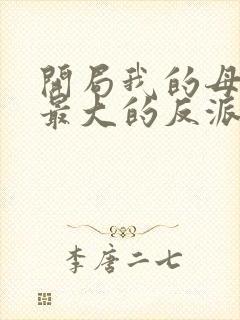 開局我的母
最大的反派
李唐二七